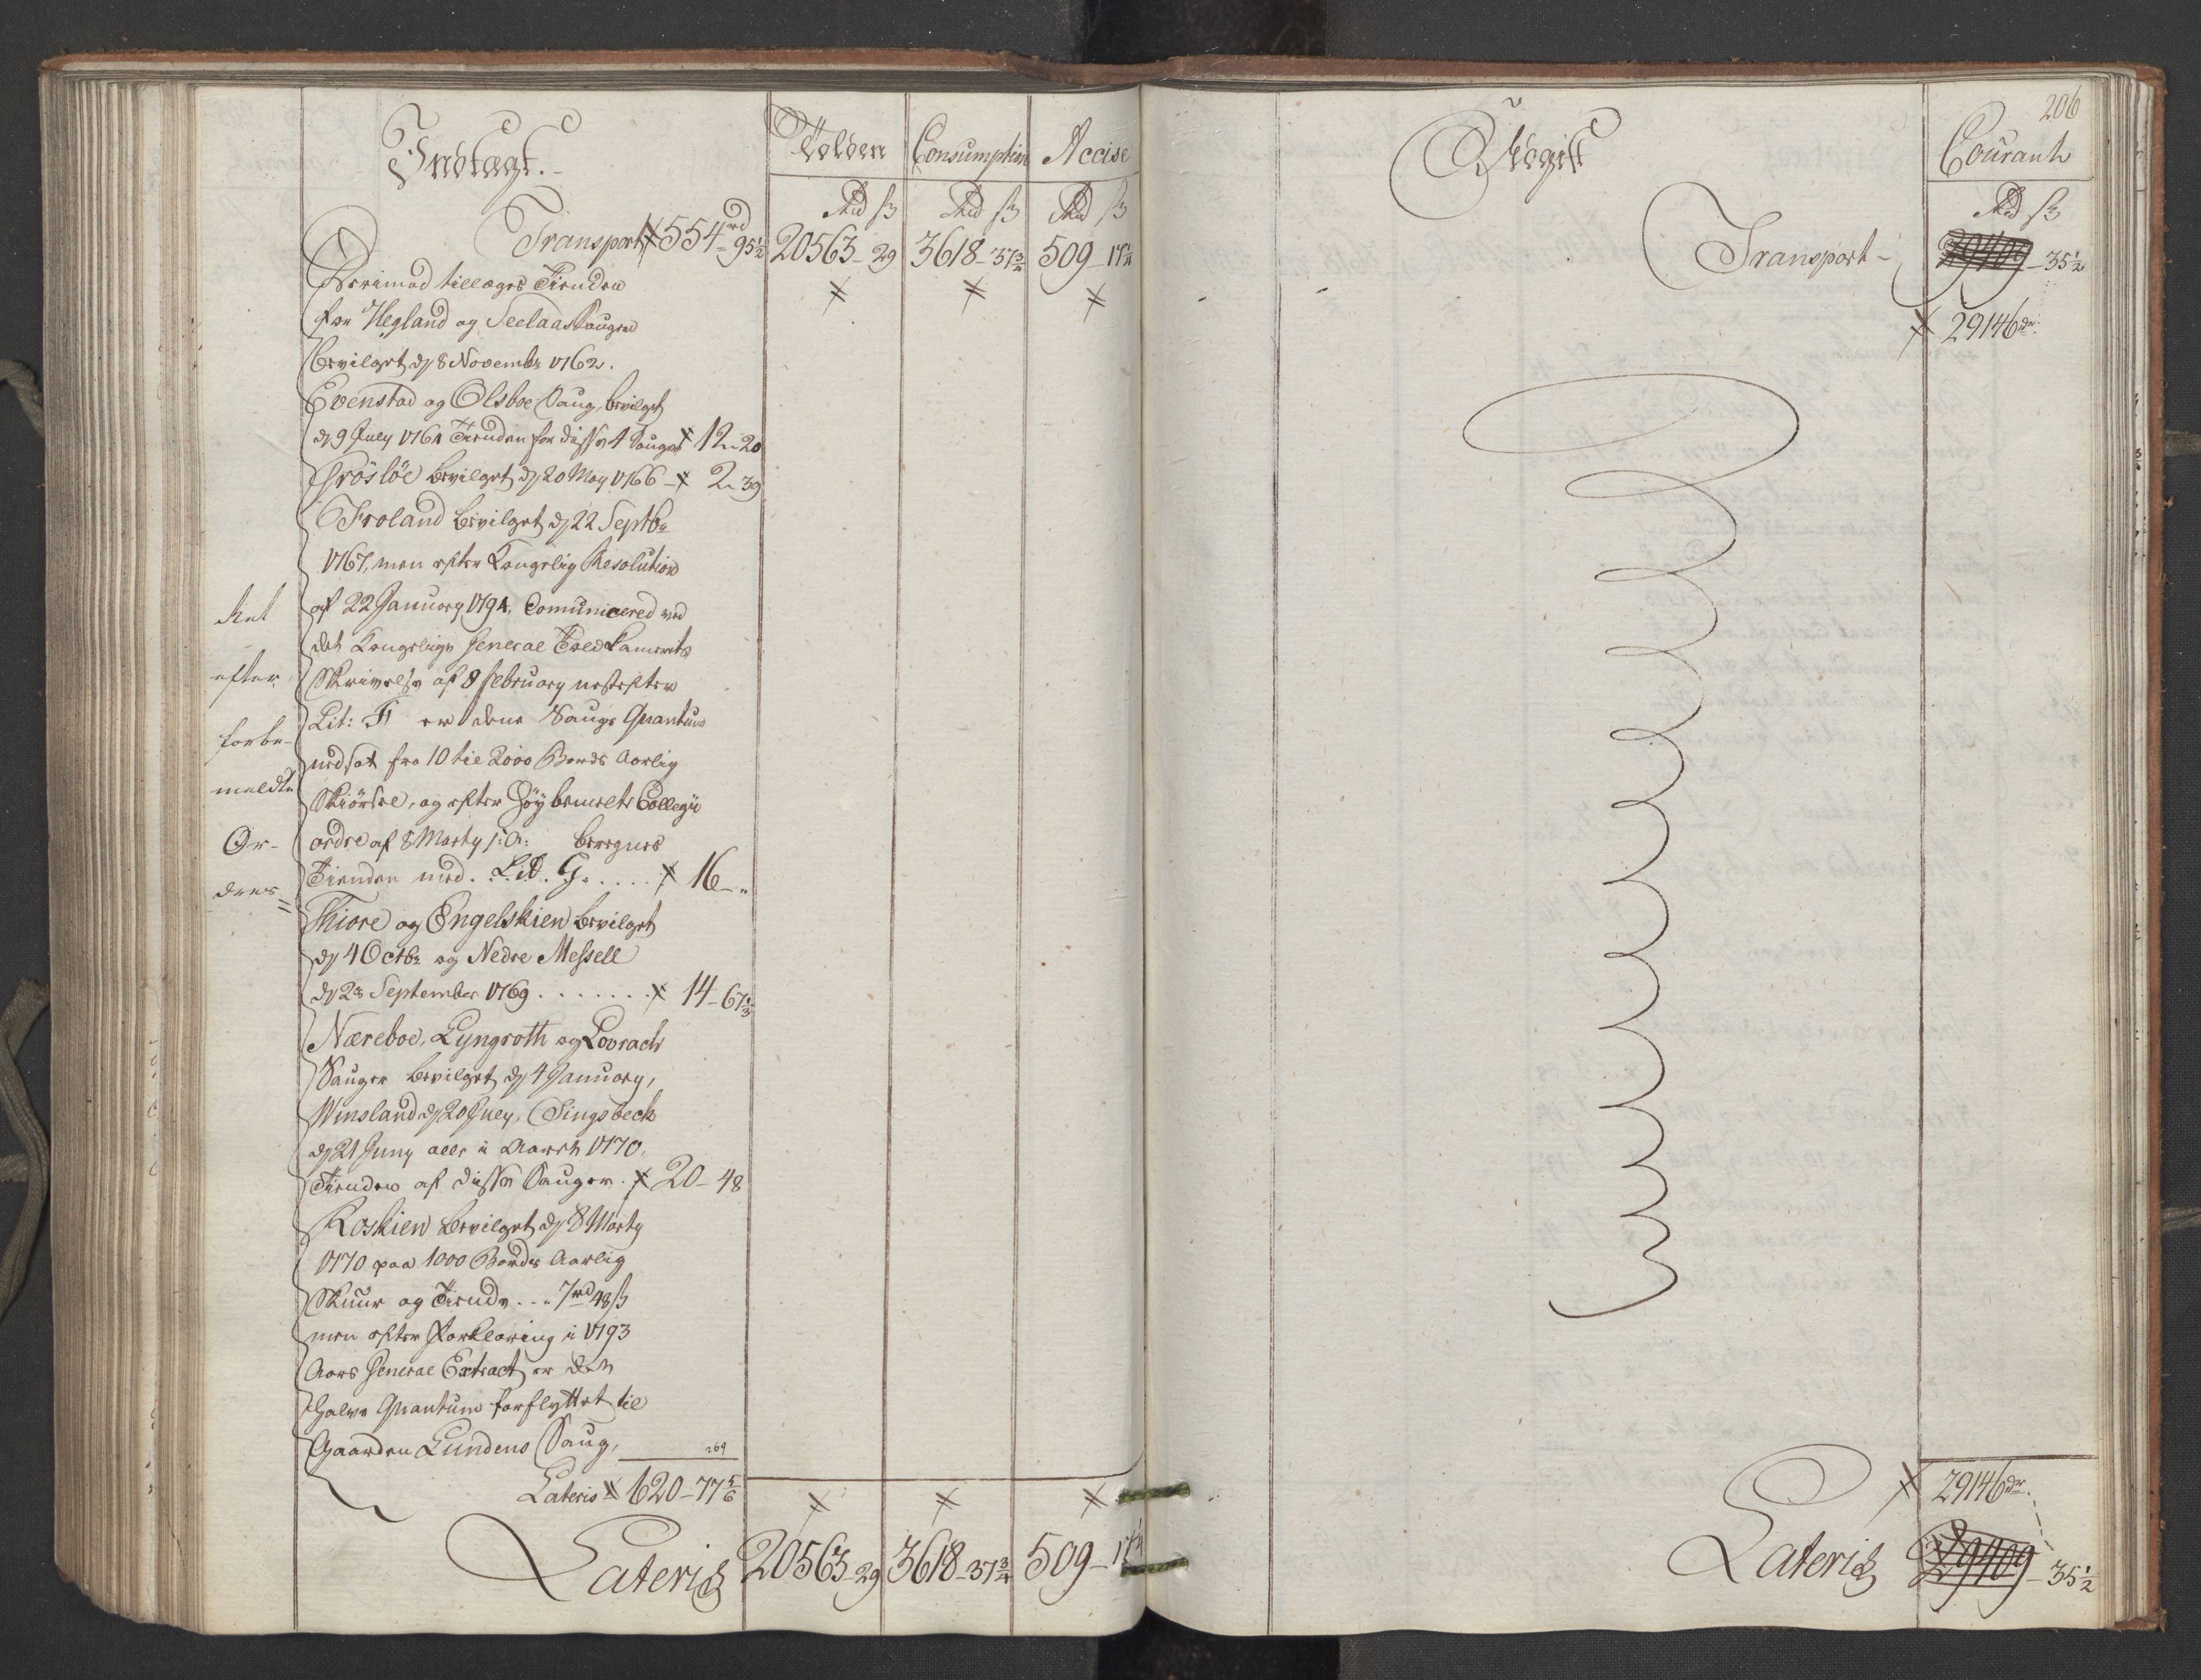 Indtægt.
Tolden Consumption Accise
Rd ß Rd ß Rd ß
Transport 554 rd 95½ 20563-29 3618-37¾ 509-17¼
Derimod tillægges Tienden
for Hegland og Seelaas Sauger
bevilget d 8 Novembr 1762.
Evenstad og Olsboe Saug, bevilget
d 9 July 1764 Tienden for disse 4 Sauger 12-20
Frösløe bevilget d 20 May 1766 - 2-39
Froland bevilget d 22 Septbr
1767, men efter Kongelig Resolution
af 22 January 1794. Comunicered ved
det Kongelige General Toldkammerets
Skrivelse af 8 February nestefter
Lit: F er denne Saugs Quantum
nedsat fra 10 til 2000 Bords Aarlig
Skiørsel, og efter Høybemelte Collegii
ordre af 8 Marty s: A: beregnes
Tienden med. Lit. G. . . . . 16 - "
Thiore og Engelskien bevilget
d 4 Octbr og Nedre Messell
d 28 September 1769 . . . . . . . 14-67⅓
Næreboe, Lyngroth og Lovrach
Sauger bevilget d 4 January,
Winsland d 20 July, Singsbeck
d 21 Juny alle i Aaret 1770.
Tienden af disse Sauger. 20-48
Roskien bevilget d 8 Marty
1770 paa 1000 Bords Aarlig
Skuur og Tiende . . . 7 rd 48 ß
men efter Forklaring i 1793
Aars General Extract er den
halve Quantum forflyttet til
Gaarden Lundens Saug,
269
Lateris 620-77⅚
Lateris 20563-29 3618-37¾ 509-17¼
efter
forbe-
meldte
Or-
dres
206
Udgift
Courant
Rd ß
Transport - 29409-35½
29146 dr
29146 dr.
Lateris 29409-35½